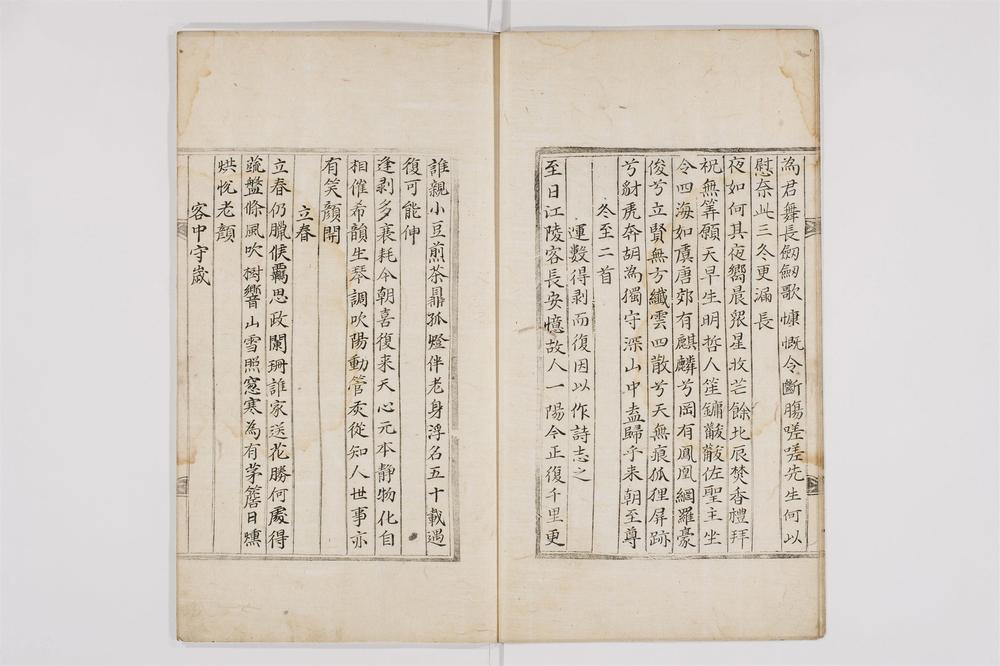 為君舞長劒劒歌慷慨令斷膓嗟嗟先生何以
慰奈此三冬更漏長
夜如何其夜嚮晨衆星收芒餘北辰焚香禮拜
祝無筭願天早生明哲人笙鏞黻黻佐聖主坐
令四海如虞唐郊有麒麟兮岡有鳳凰網羅豪
俊兮立賢無方纖雲四散兮天無痕狐狸屛跡
兮豺虎奔胡為獨守深山中盍歸乎来朝至尊
冬至二首
運數得剥而復因以作詩志之
至日江陵客長安憶故人一陽今正復千里更
誰親小豆煎茶鼎孤燈伴老身浮名五十載遇
復可能伸
逢剥多衰耗今朝喜復来天心元本静物化自
相催希韻生琴調吹陽動管灰從知人世事亦
有笑顏開
立春
立春仍臘候羈思政闌珊誰家送花勝何處得
蔬盤條風吹樹響山雪照窓寒為有茅簷日燻
烘悅老顏
客中守歲